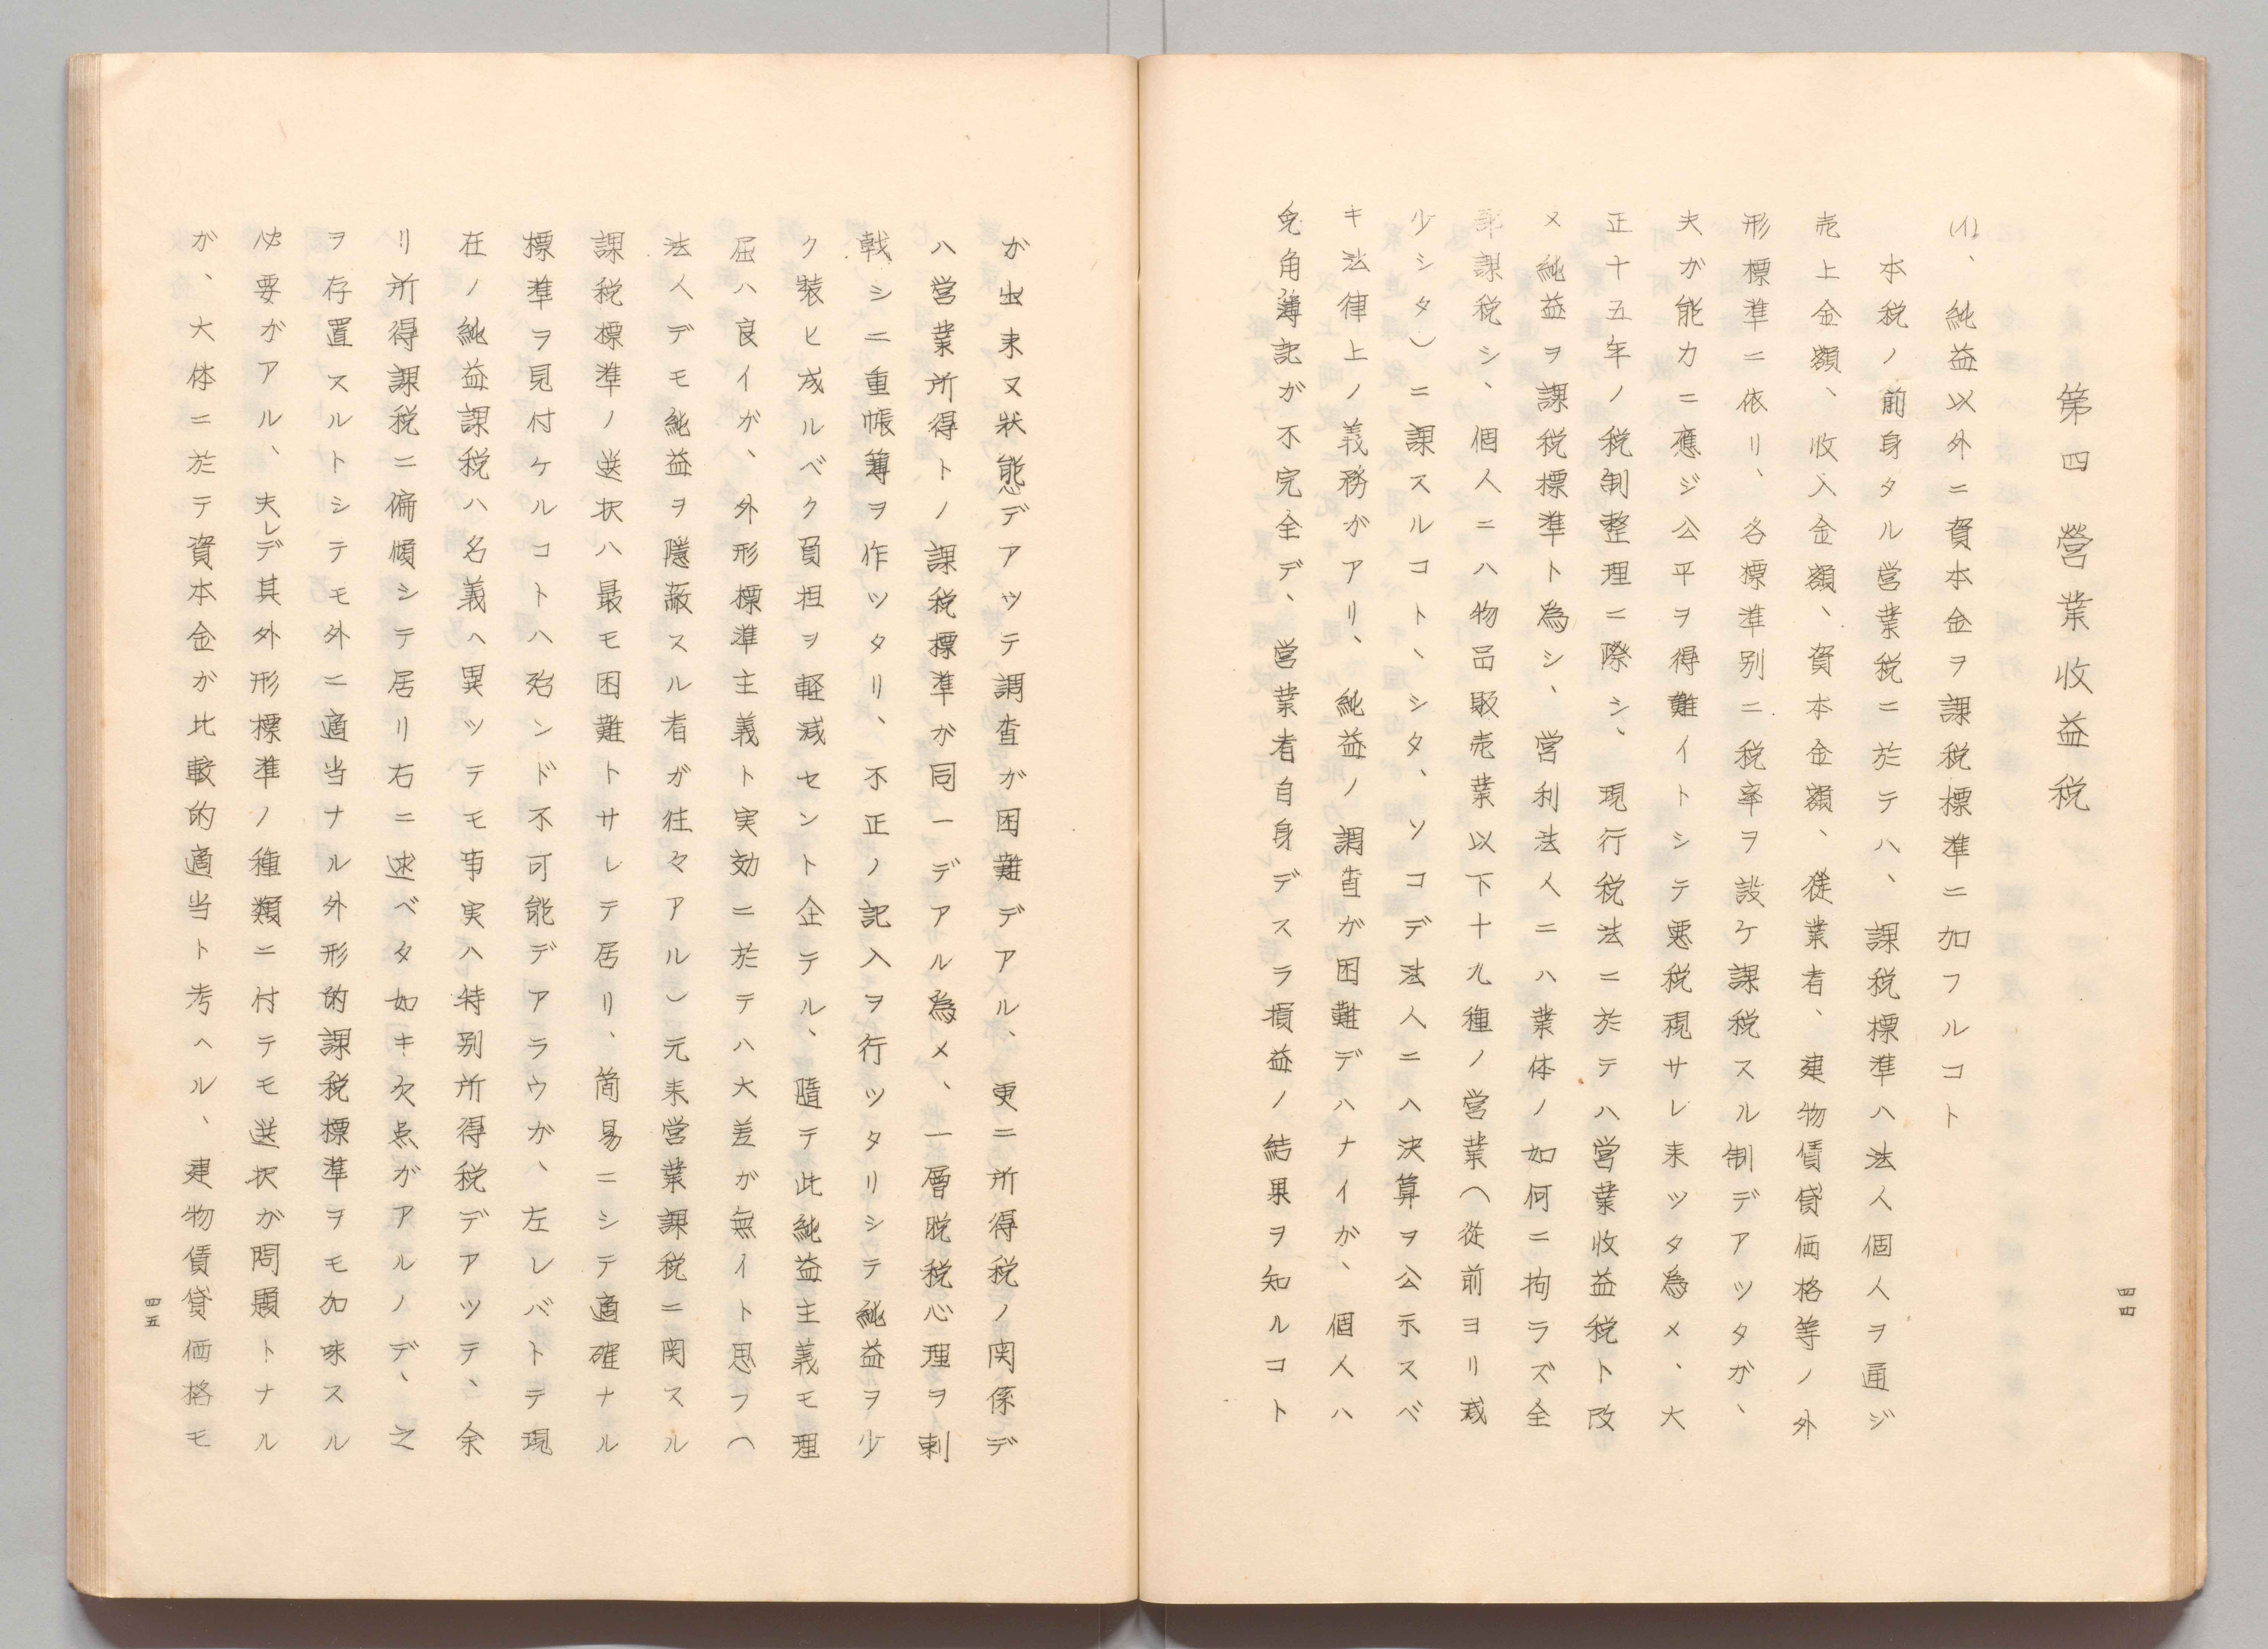 第四 營業收益税
(1)、純益以外ニ資本金ヲ課税標準ニ加フルコト
本税ノ前身タル営業税ニ於テハ、課税標準ハ法人個人ヲ通ジ
売上金額、收入金額、資本金額、従業者、建物賃貸価格等ノ外
形標準ニ依リ、各標準別ニ税率ヲ設ケ課税スル制デアツタガ、
夫が能力ニ應ジ公平ヲ得難イトシテ悪税視サレ来ツタ為メ、大
正十五年ノ税制整理ニ際シ、現行税法ニ於テハ営業收益税ト改
メ純益ヲ課税標準ト為シ、営利法人ニハ業体ノ如何ニ拘ラズ全
部課税シ、個人ニハ物品販売業以下十九種ノ営業(従前ヨリ減
少シタ)ニ課スルコトヽシタ、ソコデ法人ニハ決算ヲ公示スベ
キ法律上ノ義務ガアリ、純益ノ調査が困難デハナイが、個人ハ
兎角簿記が不完全デ、営業者自身デスラ損益ノ結果ヲ知ルコト
四四
が出来又状態デアツテ調査が困難デアル、更ニ所得税ノ関係デ
ハ営業所得トノ課税標準が同一デアル為メ、一層脱税心理ヲ刺
戟シニ重帳簿ヲ作ツタリ、不正ノ記入ヲ行ツタリシテ純益ヲ少
ク装ヒ成ルベク負担ヲ軽減セント企テル、隨テ此純益主義モ理
屈ハ良イが、外形標準主義ト実効ニ於テハ大差が無イト思フ(
法人デモ純益ヲ隠蔽スル者が往々アル)元来営業課税ニ関スル
課税標準ノ送択ハ最モ困難トサレテ居リ、簡易ニシテ適確ナル
標準ヲ見付ケルコトハ殆ンド不可能デアラウが、左レバトテ現
在ノ純益課税ハ名義ヘ異ツテモ事実ハ特別所得税デアツテ、余
リ所得課税ニ偏傾シテ居リ右ニ述ベタ如キ欠点ガアルノデ、之
ヲ存置スルトシテモ外ニ適当ナル外形的課税標準ヲモ加味スル
必要ガアル、夫レデ其外形標準ノ種類ニ付テモ送択が問題トナル
が、大体ニ於テ資本金が比較的適当ト考ヘル、建物賃貸価格モ
四五